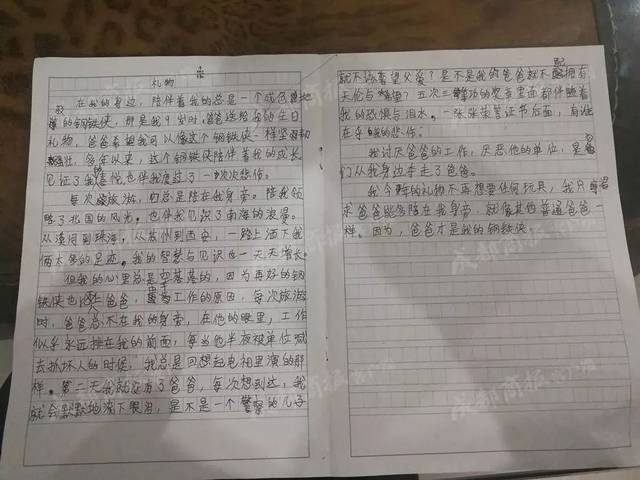 礼物
在我的身边，陪伴着我的总是一个
的钢铁侠，那是我生日时，爸爸送给我的生日
礼物，爸爸希望我可以像这个钢铁侠一样坚
多年以来，这个钢铁侠陪伴着我的成长
见证了我喜悦，也伴我度过了一次次悲伤。
每次旅游，它总是陪在我身旁。陪我领
略了北国的风光，也伴我见识了南海的浪漫。
从漠河到珠海，从苏州到西安，一路上洒下我
俩太多的足迹。我的智慧与见识也一天天增长。
但我的心里总是空落落的，因为再好的钢
铁侠也比不上爸爸，工作的原因，每次旅游
时，爸爸总不在我的身旁，在他的眼里，工作
似乎永远排在我的前面，每当他半夜被单位喊
去抓坏人的时候，我总是回想起电视里演的那
样。第二天我就没有了爸爸，每次想到这，我
就会默默地流下眼泪，是不是一个警察的儿子
就不该奢望父爱？是不是我的爸爸就不配拥有
天伦与 五次三等功的奖章里面都伴随着
我的恐惧与泪水。一张张荣誉证书后面，有谁
在乎 的悲伤。
我讨厌爸爸的工作，厌恶他的单位，是
们从我身边夺走了爸爸。
我今年的礼物不再想要任何玩具，我只
求爸爸能多陪在我身旁，就像其他普通爸爸一
样。因为，爸爸才是我的钢铁侠。
成都商报 客户端
成都商报 客户端